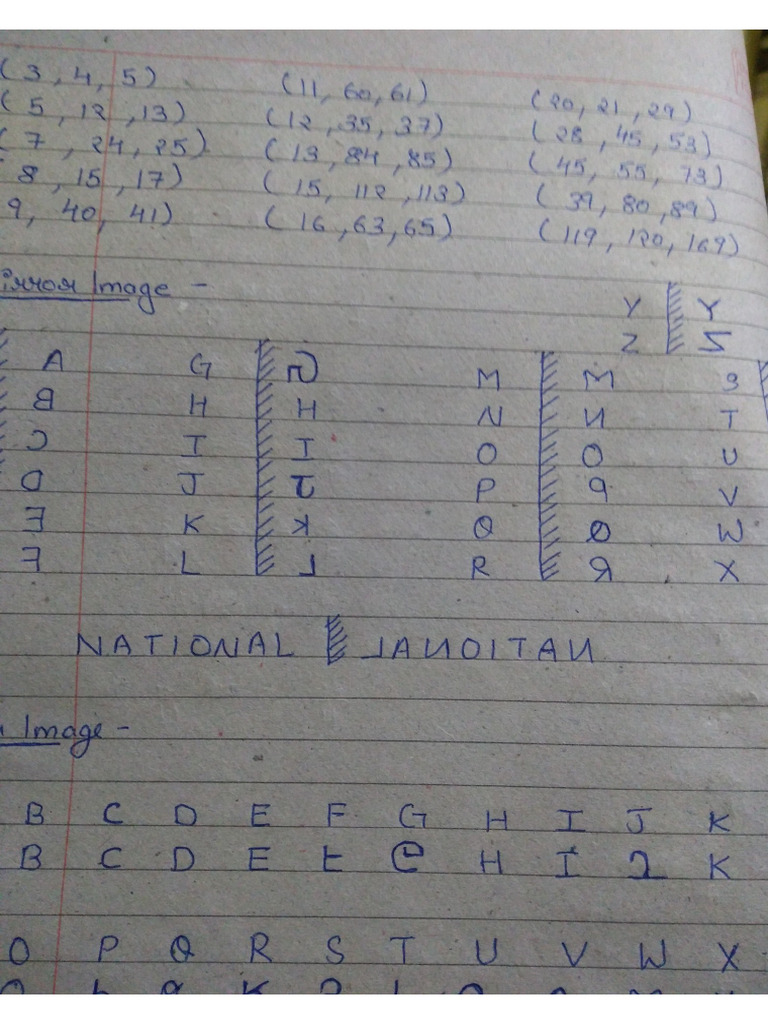 (3, 4, 5) (11, 60, 61) (20, 21, 29)
(5, 12, 13) (12, 35, 37) (28, 45, 53)
(7, 24, 25) (13, 84, 85) (45, 55, 73)
8, 15, 17) (15, 112, 113) (39, 80, 89)
9, 40, 41) (16, 63, 65) (119, 120, 169)
irror Image -
Y Y
Z Z
A G G M M S
B H H N N T
C I I O O U
D J J P P V
E K K Q Q W
L L R R X
NATIONAL JANOITAN
Image -
B C D E F G H I J K
B C D E F G H I J K
O P Q R S T U V W X